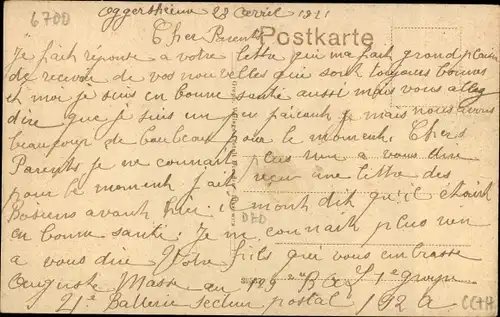 6700
Oggersheim 23 Avril 1921
Postkarte
Chers Parents
Je fait réponse a votre lettre qui ma fait grand plaisir
de recevoir de vos nouvelles qui sont toujours bonnes
et moi je suis en bonne santé aussi mais vous allez
dire que je suis un peu faineant mais nous avons
beaucoup de bouleau pour le moment. Chers
Parents je ne connait plus rien a vous dire
pour le moment j'ait reçu une lettre des
avant hier i mont dit qu'il étaient
D70
en bonne santé. Je m connait plus rien
a vous dire Votre fils qui vous embrasse
Auguste Masse au 129 1e groupe
21e Batterie secteur postal 192 A
CCTH